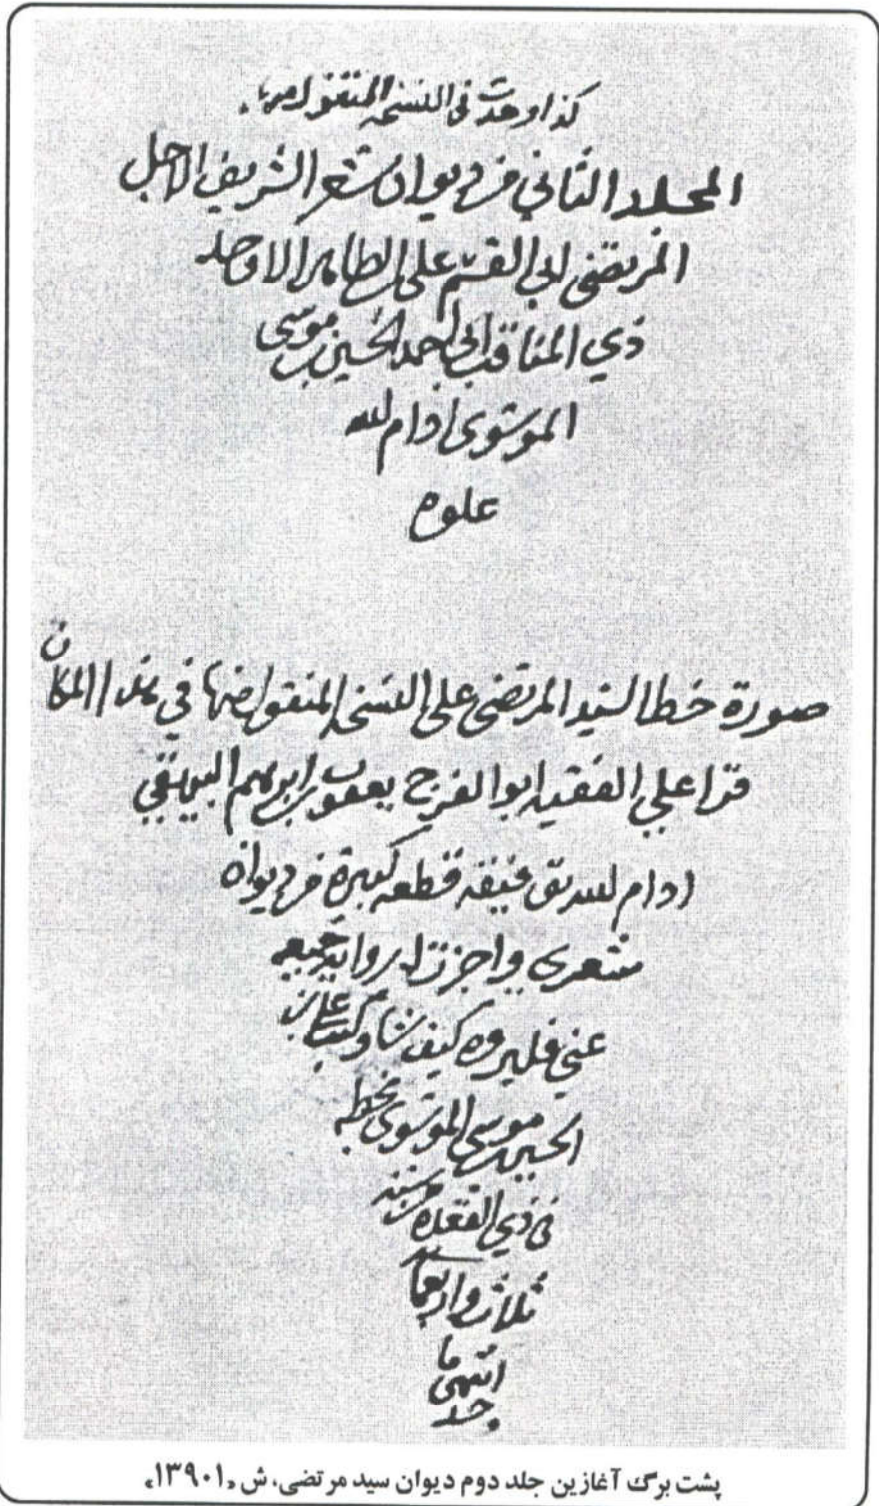 كذا وجدت فى النسخة المنقول منها
المجلد الثاني من ديوان شعر الشريف الاجل
المرتضى ابى القسم على الطاهر الاوحد
ذي المناقب ابى احمد الحسين بن موسى
الموسوى ادام الله
علوه
صورة خط السيد المرتضى على النسخة المنقول منها في هذا المكان
قرا علي الفقيه ابو الفرج يعقوب بن ابراهيم البيهقي
ادام الله توفيقه قطعه كبيرة من ديوان
شعري واجزت له رواية جميعه
عني فليروه كيف شا وكتب على بن
الحسين بن موسى الموسوى بخطه
فى ذي القعدة من سنه
ثلاث واربعمائة
انتهى ما
وجد
پشت برگ آغازین جلد دوم دیوان سید مرتضی، ش «۱۳۹۰۱»